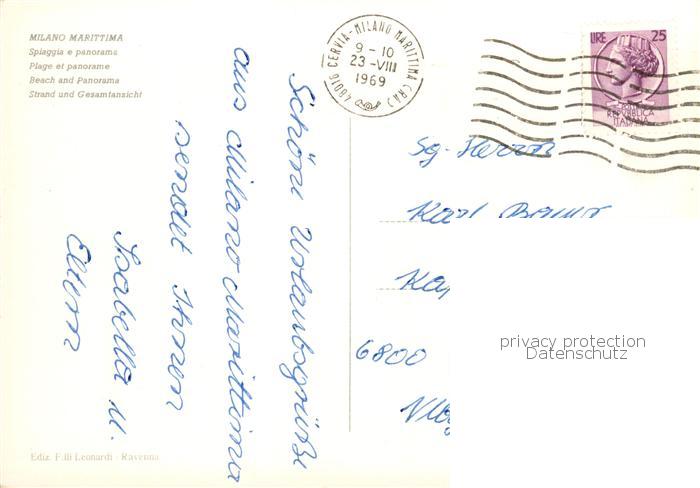 MILANO MARITTIMA
Spiaggia e panorama
Plage et panorame
Beach and Panorama
Strand und Gesamtansicht
48016 CERVIA-MILANO MARITTIMA (RA)
9-10
23-VIII
1969
LIRE 25
REPUBBLICA
ITALIANA
Schöne Urlaubsgrüße
aus Milano Marittima
sendet Ihnen
Isabella u.
Eltern
Sg. Herrn
Karl
6800
privacy protection
Datenschutz
Ediz. F.lli Leonardi - Ravenna